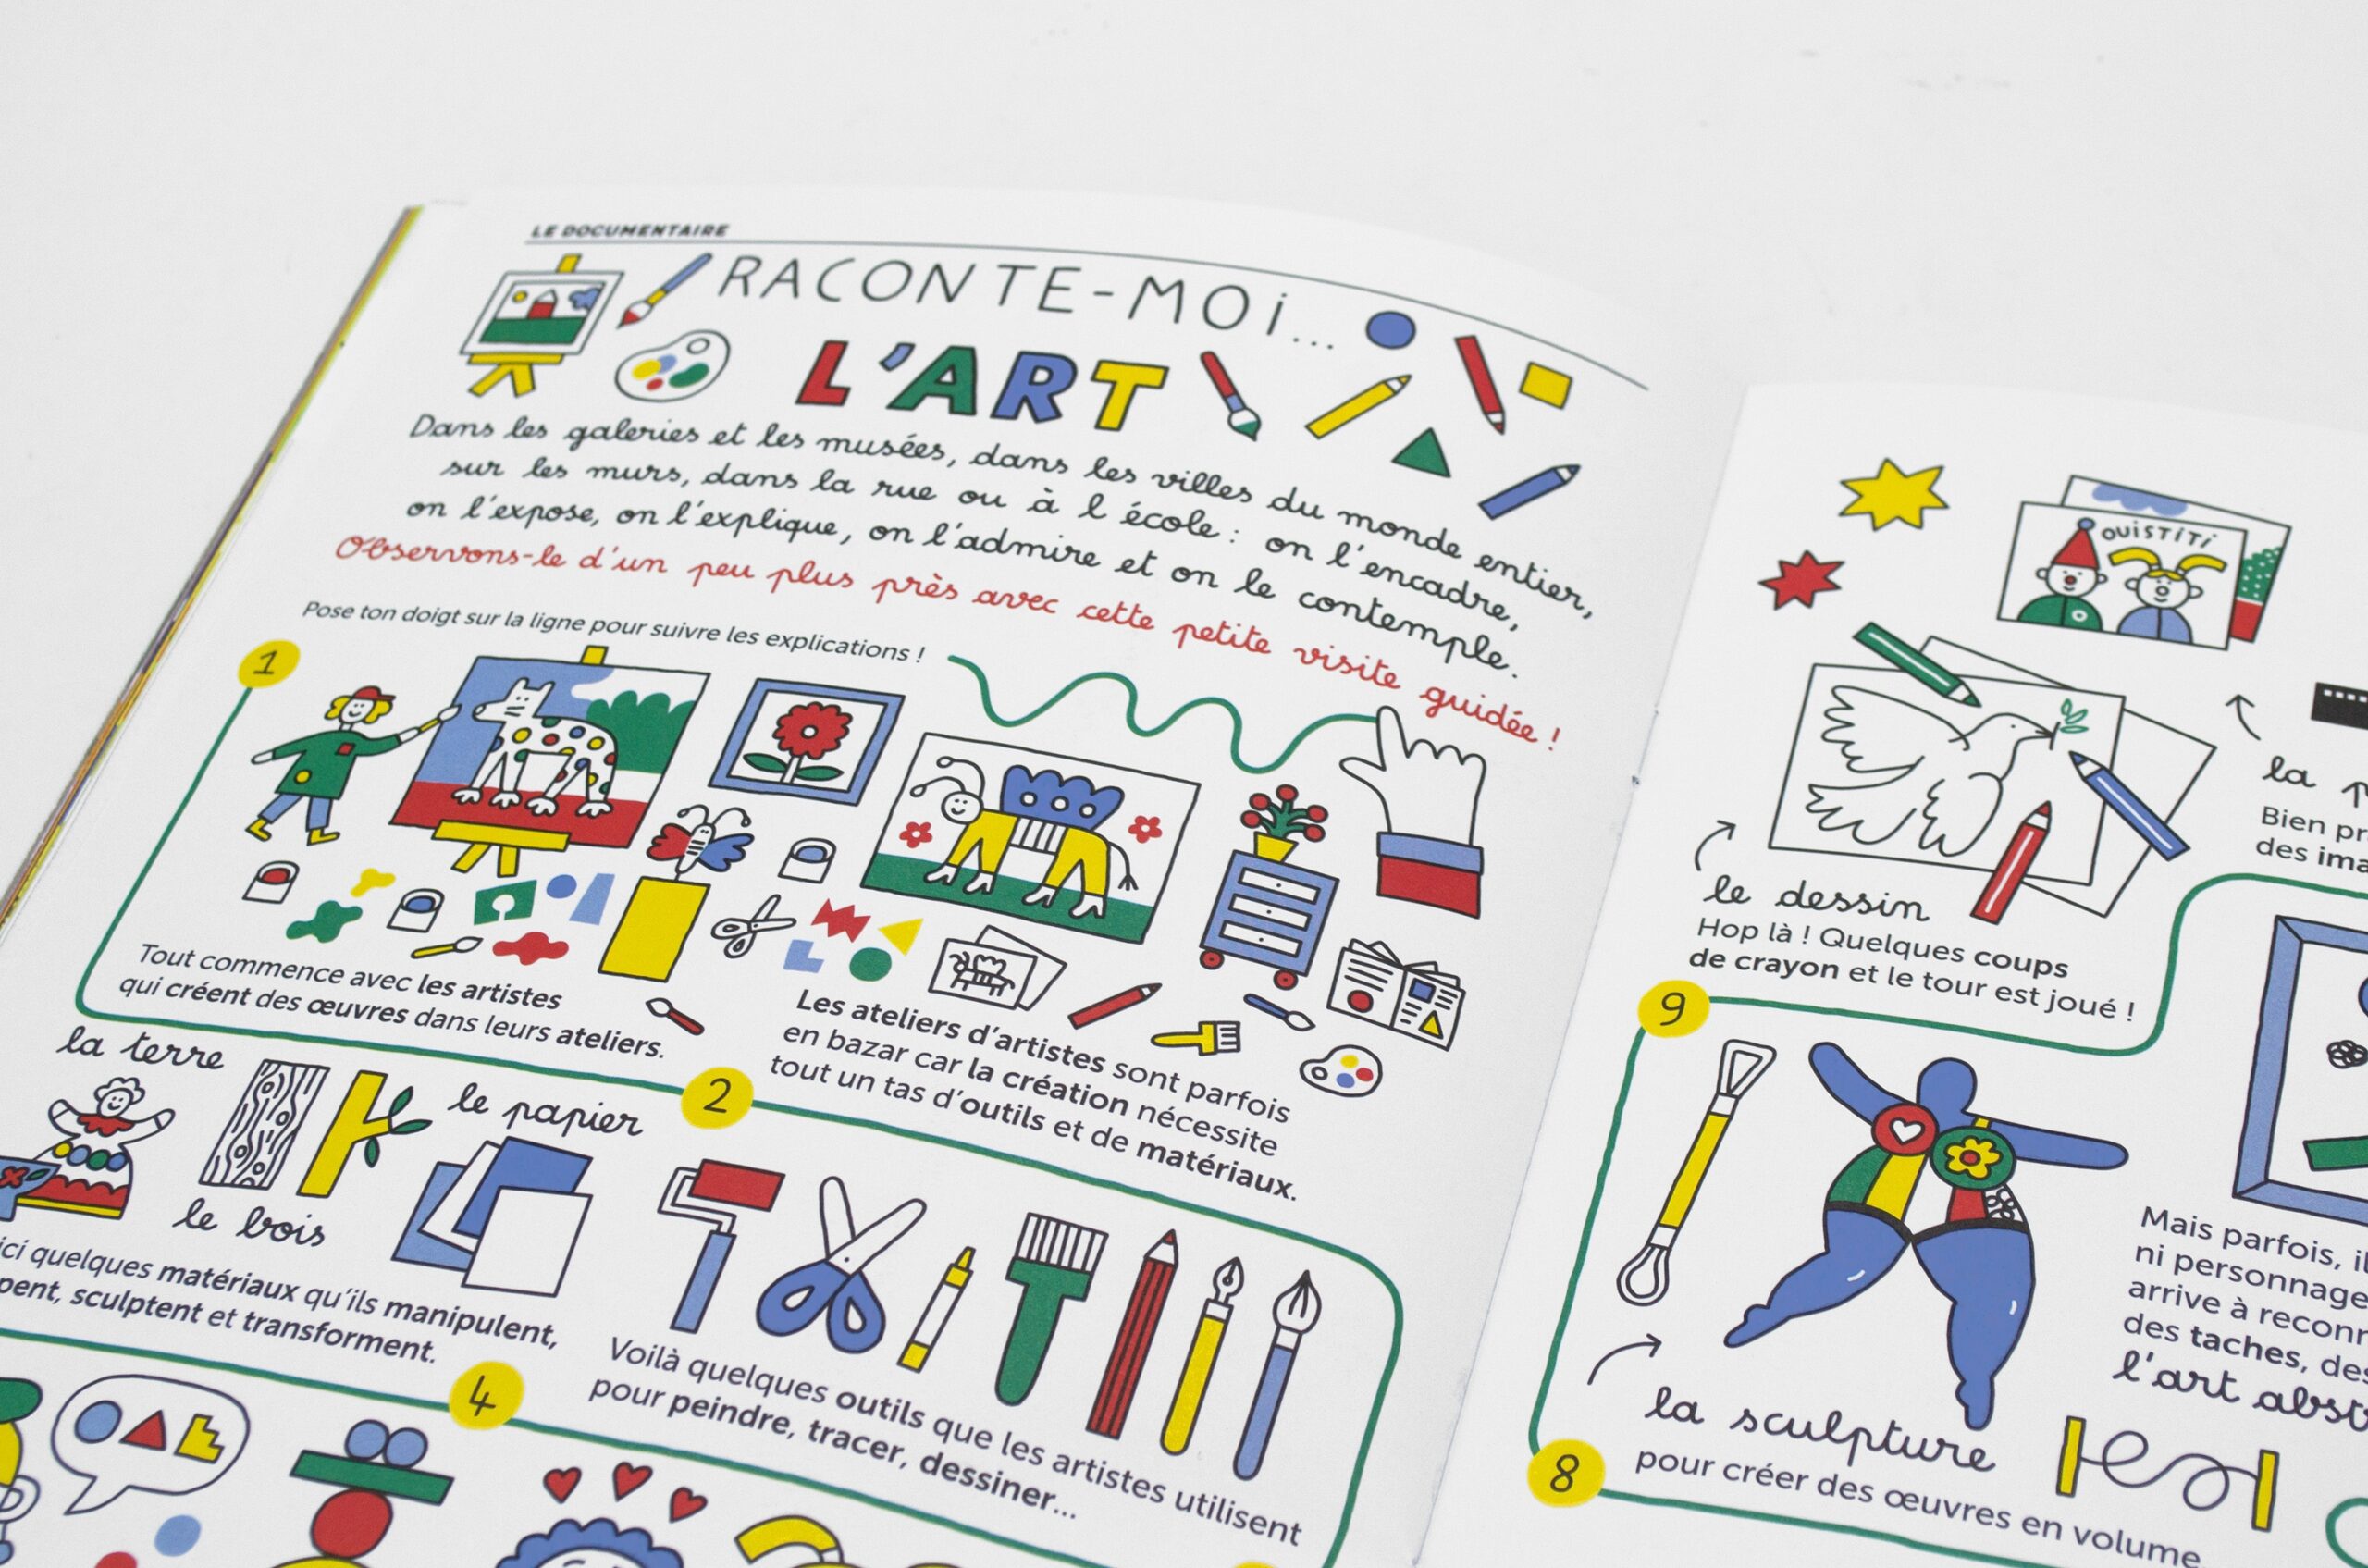 LE DOCUMENTAIRE
RACONTE-MOI...
L'ART
Dans les galeries et les musées, dans les villes du monde entier,
sur les murs, dans la rue ou à l'école : on l'encadre,
on l'expose, on l'explique, on l'admire et on le contemple.
Observons-le d'un peu plus près avec cette petite visite guidée !
Pose ton doigt sur la ligne pour suivre les explications !
1
Tout commence avec les artistes
qui créent des œuvres dans leurs ateliers.
2
Les ateliers d'artistes sont parfois
en bazar car la création nécessite
tout un tas d'outils et de matériaux.
la terre
le bois
le papier
ici quelques matériaux qu'ils manipulent,
sculptent et transforment.
4
Voilà quelques outils que les artistes utilisent
pour peindre, tracer, dessiner...
OUISTITI
la
Bien
des
le dessin
Hop là ! Quelques coups
de crayon et le tour est joué !
9
la sculpture
pour créer des œuvres en volume.
8
Mais parfois,
ni
arrive à
des taches,
l'art